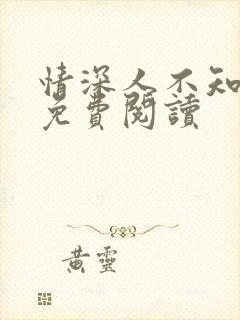 情深人不知
免費閱讀
黃靈